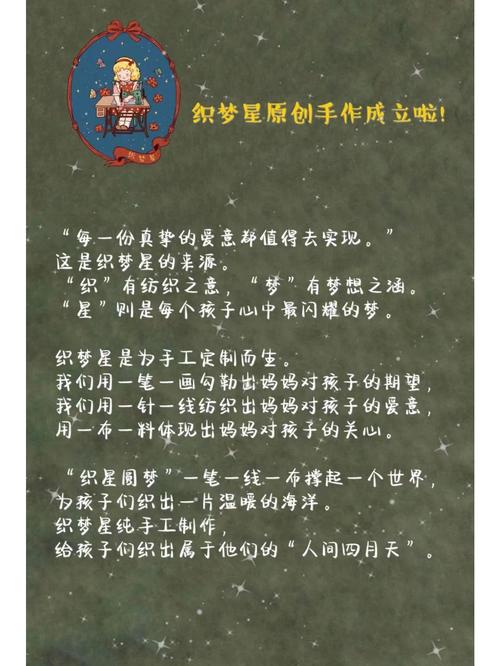 织梦星
织梦星原创手作成立啦!
“每一份真挚的爱意都值得去实现。”
这是织梦星的来源。
“织”有纺织之意，“梦”有梦想之涵。
“星”则是每个孩子心中最闪耀的梦。
织梦星是为手工定制而生。
我们用一笔一画勾勒出妈妈对孩子的期望，
我们用一针一线纺织出妈妈对孩子的爱意，
用一布一料体现出妈妈对孩子的关心。
“织星圆梦”一笔一线一布撑起一个世界，
为孩子们织出一片温暖的海洋。
织梦星纯手工制作，
给孩子们织出属于他们的“人间四月天”。